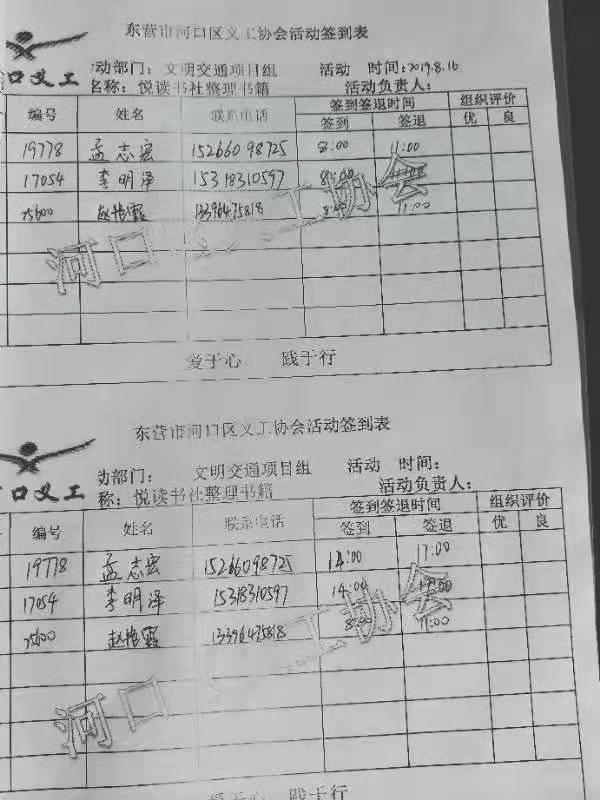 东营市河口区义工协会活动签到表
河口义工
动部门：文明交通项目组 活动 时间：2019.8.16
名称：悦读书社整理书籍 活动负责人：
编号 姓名 联系电话 签到签退时间 组织评价
签到 签退 优 良
19778 孟志宏 15266098725 8:00 11:00
17054 李明泽 15318310597 8:00 11:00
25600 赵艳霞 13396475818 8:00 11:00
河口 工协会
爱于心 践于行
东营市河口区义工协会活动签到表
口义工
动部门： 文明交通项目组 活动 时间：
称：悦读书社整理书籍 活动负责人：
编号 姓名 联系电话 签到签退时间 组织评价
签到 签退 优 良
19778 孟志宏 15266098725 14:00 17:00
17054 李明泽 15318310597 14:00 17:00
25600 赵艳霞 13396475818 8:00 11:00
河口 工协会
爱于心 践于行